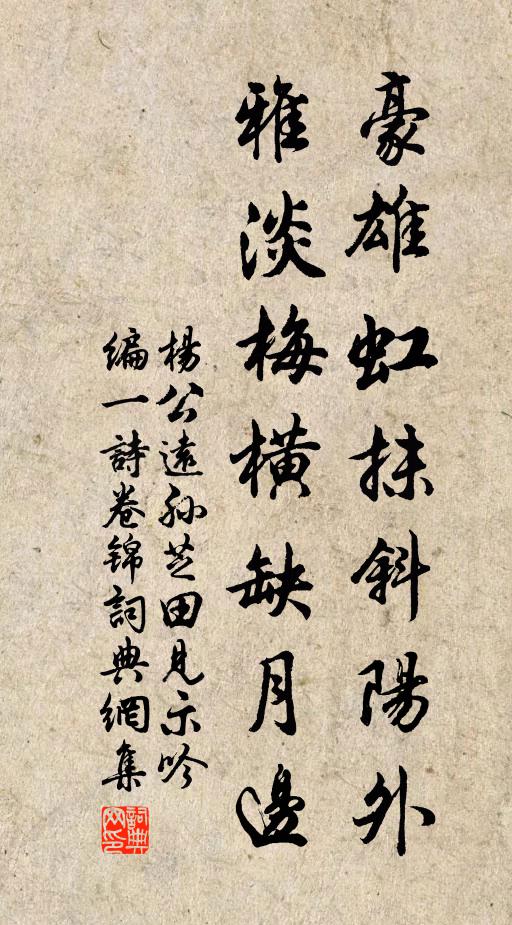 豪雄虹抹斜陽外
雅淡梅橫缺月邊
楊公遠孫芝田見示吟
編一詩卷錦詞典網集
詞典
网印